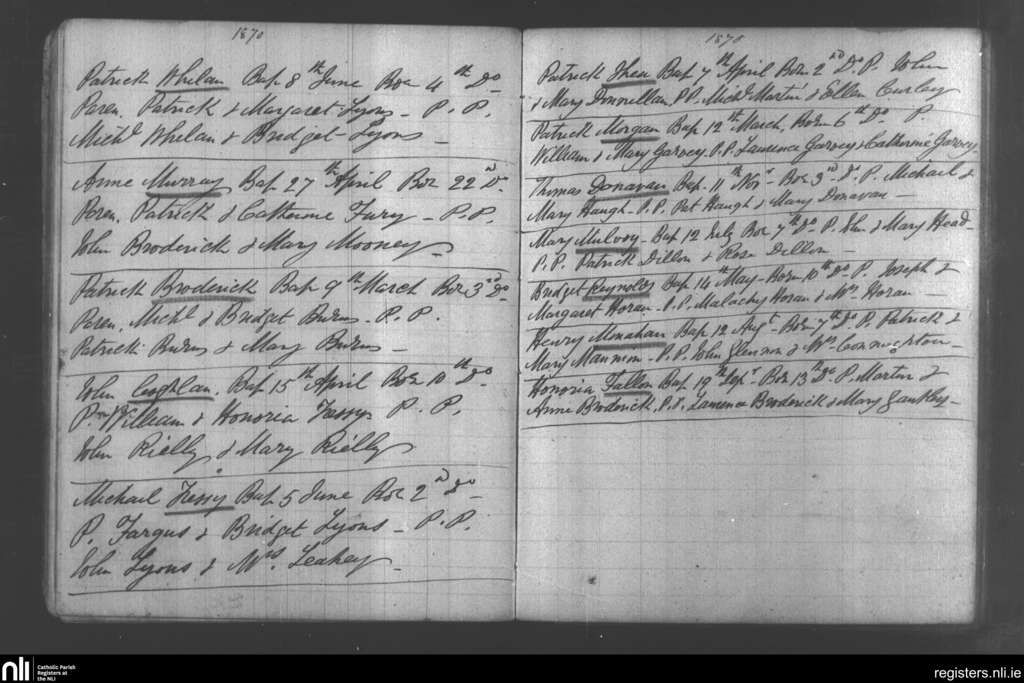 1870
Patrick Whelan Bap 8th June Bor 4th Do
Paren. Patrick & Margaret Lyons - P. P.
Michl Whelan & Bridget Lyons -
Anne Murray Bap 27th April Bor 22nd Do
Paren. Patrick & Catherine Fury - P.P.
John Broderick & Mary Mooney -
Patrick Broderick Bap 9th March Bor 3rd Do
Paren. Michl & Bridget Burns - P. P.
Patrick Burns & Mary Burns -
John Coghlan. Bap 15th April Bor 10th Do
William & Honoria Fessy P. P.
John Rielly & Mary Rielly
Michael Fessy Bap 5 June Bor 2nd Do
P. Fargus & Bridget Lyons - P. P.
John Lyons & Mrs Leahey -
1870
Patrick Shea Bap 7th April Bor 2nd Do P. John
& Mary Donnellan P.P. Michl Martin & Ellen Curley
Patrick Morgan Bap 12th March, Born 6th Do P.
William & Mary Garvey. P.P. Lawrence Garvey & Catherine Garvey
Thomas Donavan Bap. 11th Novr - Bor 3rd Do P. Michael &
Mary Haugh - P.P. Pat Haugh & Mary Donavan -
Mary Mulvoy - Bap 12 July Bor 7th Do P. John & Mary Head -
P.P. Patrick Dillon & Rose Dillon -
Bridget Reynolds Bap 14th May - Born 10th Do P. Joseph &
Margaret Horan - P.P. Malachy Horan & Mrs Horan -
Henry Monahan Bap 12 Augt - Born 7th Do P. Patrick &
Mary Mannion - P.P. John Glennon & Mrs Connughton -
Honoria Fallon Bap 19th Sept - Bor 13th Do P. Martin &
Anne Broderick. P.P. Lawrence Broderick & Mary Gantley -
nli
Catholic Parish
Registers at
the NLI
registers.nli.ie